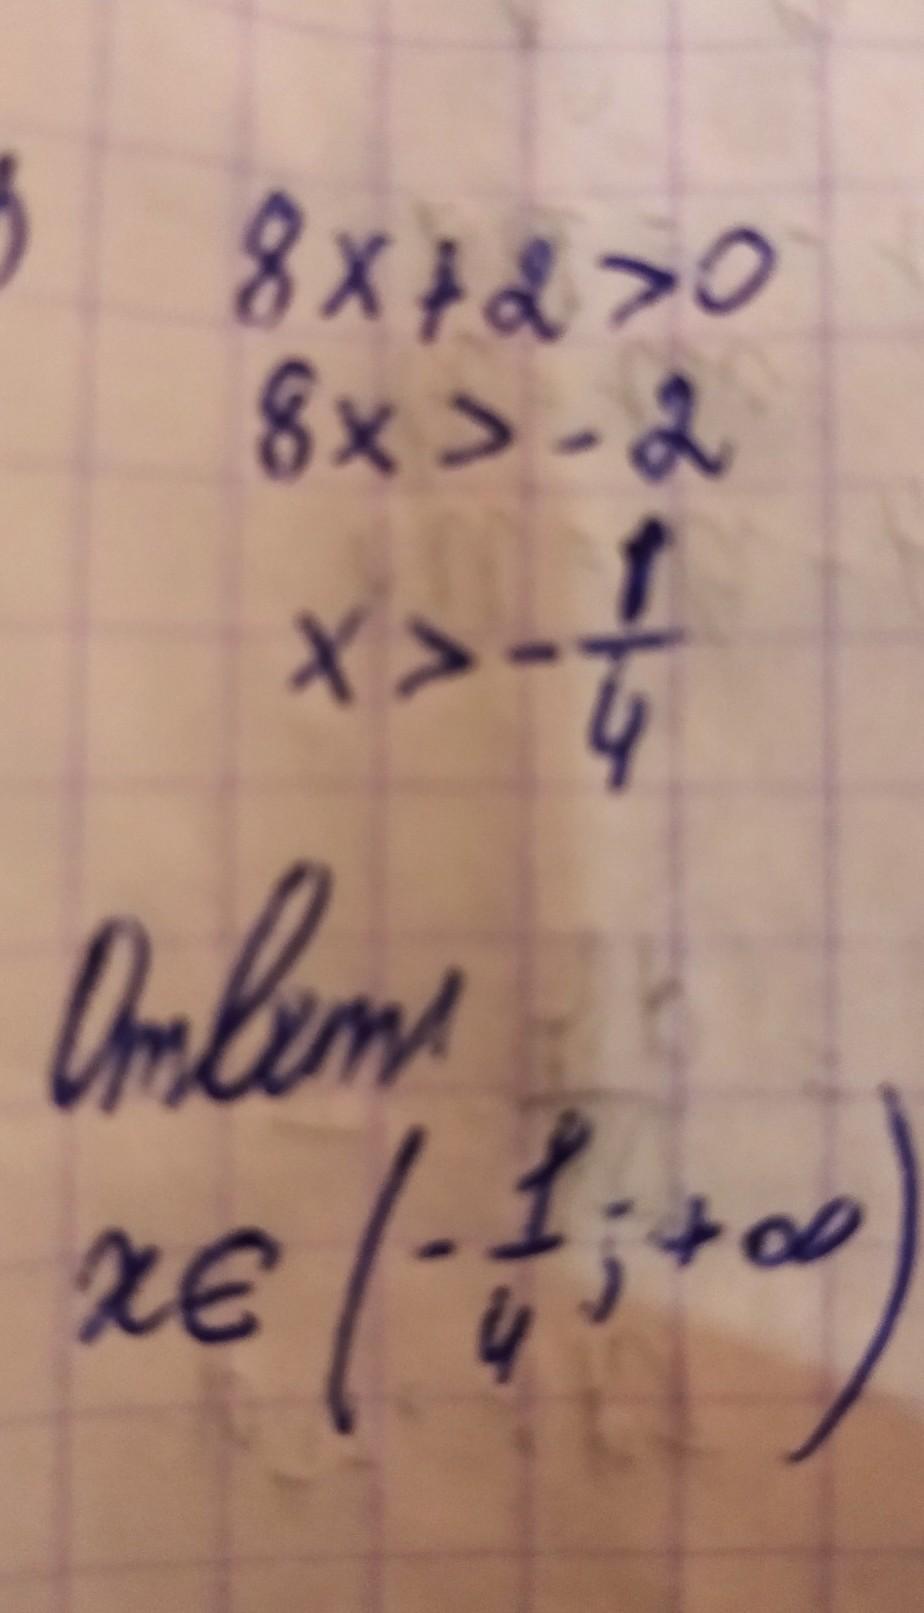 8x+2>0
8x>-2
x>-1/4
Ответ
x∈(-1/4;+∞)